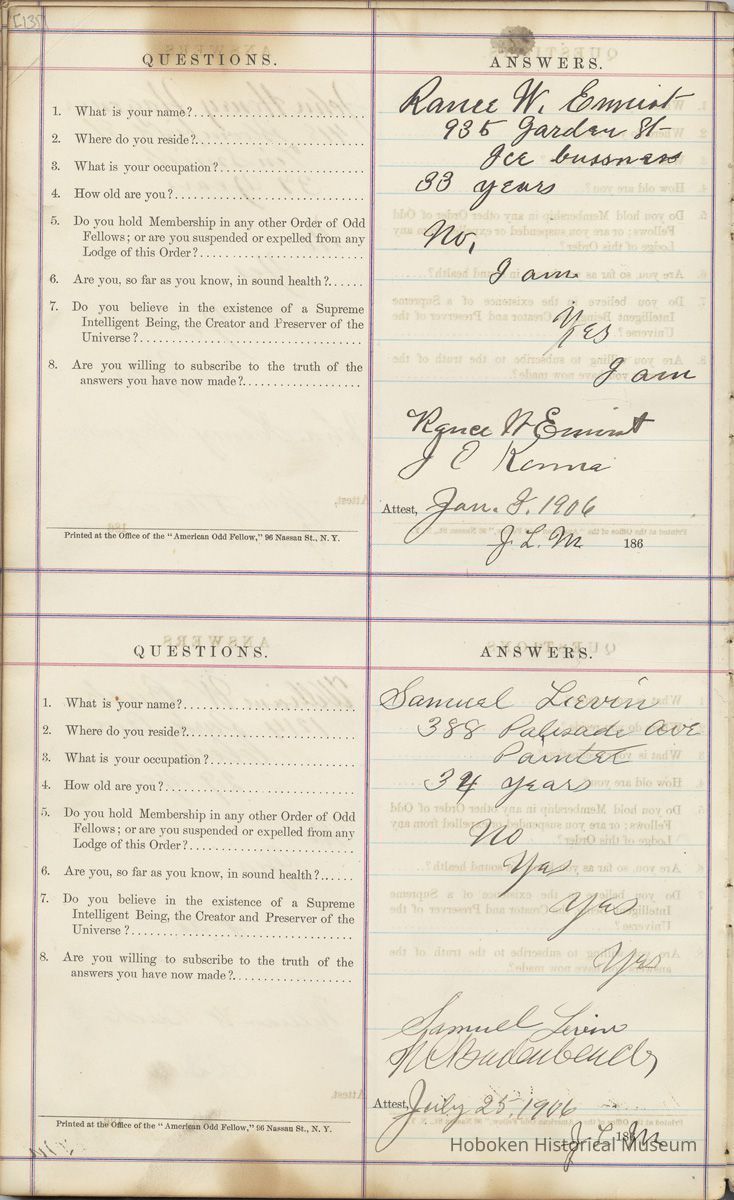 [135]
QUESTIONS.
ANSWERS.
1. What is your name?
Rance W. Enniot
2. Where do you reside?
935 Garden St
3. What is your occupation?
Ice bussness
4. How old are you?
33 years
5. Do you hold Membership in any other Order of Odd
Fellows; or are you suspended or expelled from any
Lodge of this Order?
No,
6. Are you, so far as you know, in sound health?
I am
7. Do you believe in the existence of a Supreme
Intelligent Being, the Creator and Preserver of the
Universe?
Yes
8. Are you willing to subscribe to the truth of the
answers you have now made?
I am
Rance W
J C
Attest, Jan. 8, 1906
J. L. M. 186
Printed at the Office of the "American Odd Fellow," 96 Nassau St., N. Y.
QUESTIONS.
ANSWERS.
1. What is your name?
Samuel Lievin
2. Where do you reside?
388 Palisade Ave
3. What is your occupation?
Painter
4. How old are you?
34 years
5. Do you hold Membership in any other Order of Odd
Fellows; or are you suspended or expelled from any
Lodge of this Order?
No
6. Are you, so far as you know, in sound health?
Yas
7. Do you believe in the existence of a Supreme
Intelligent Being, the Creator and Preserver of the
Universe?
Yas
8. Are you willing to subscribe to the truth of the
answers you have now made?
Yas
Samuel Levin
Attest, July 25, 1906
J L M 186
Printed at the Office of the "American Odd Fellow," 96 Nassau St., N. Y.
Hoboken Historical Museum